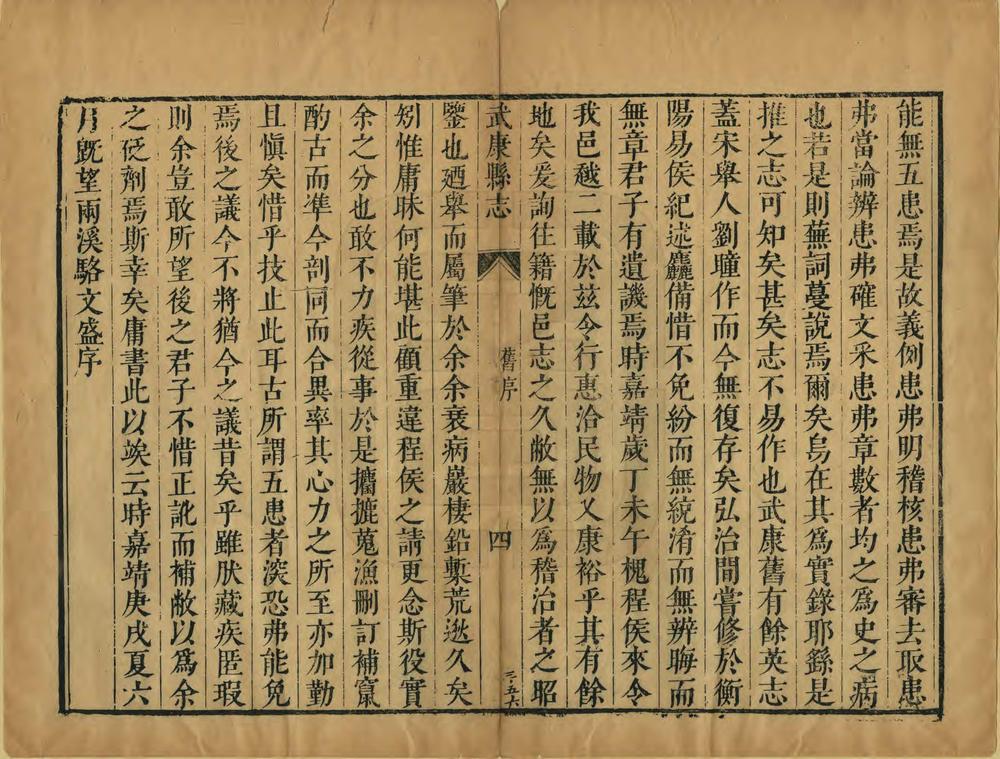 能無五患焉是故義例患弗明稽核患弗審去取患
弗當論辨患弗確文采患弗章數者均之爲史之病
也若是則蕪詞蔓說焉爾矣烏在其爲實錄耶繇是
推之志可知矣甚矣志不易作也武康舊有餘英志
蓋宋舉人劉瞳作而今無復存矣弘治間嘗修於衡
陽易侯紀述麤備惜不免紛而無統淆而無辨晦而
無章君子有遺譏焉時嘉靖歲丁未午槐程侯來令
我邑越二載於茲令行惠洽民物又康裕乎其有餘
地矣爰詢往籍慨邑志之久敝無以爲稽治者之昭
武康縣志
舊序
四
三·五六
鑒也廼舉而屬筆於余余衰病巖棲鉛槧荒逖久矣
矧惟庸昧何能堪此顧重違程侯之請更念斯役實
余之分也敢不力疾從事於是攟摭蒐漁刪訂補竄
酌古而凖今剖同而合異率其心力之所至亦加勤
且愼矣惜乎技止此耳古所謂五患者深恐弗能免
焉後之議今不將猶今之議昔矣乎雖肰藏疾匿瑕
則余豈敢所望後之君子不惜正訛而補敝以爲余
之砭劑焉斯幸矣庸書此以竢云時嘉靖庚戌夏六
月旣望兩溪駱文盛序